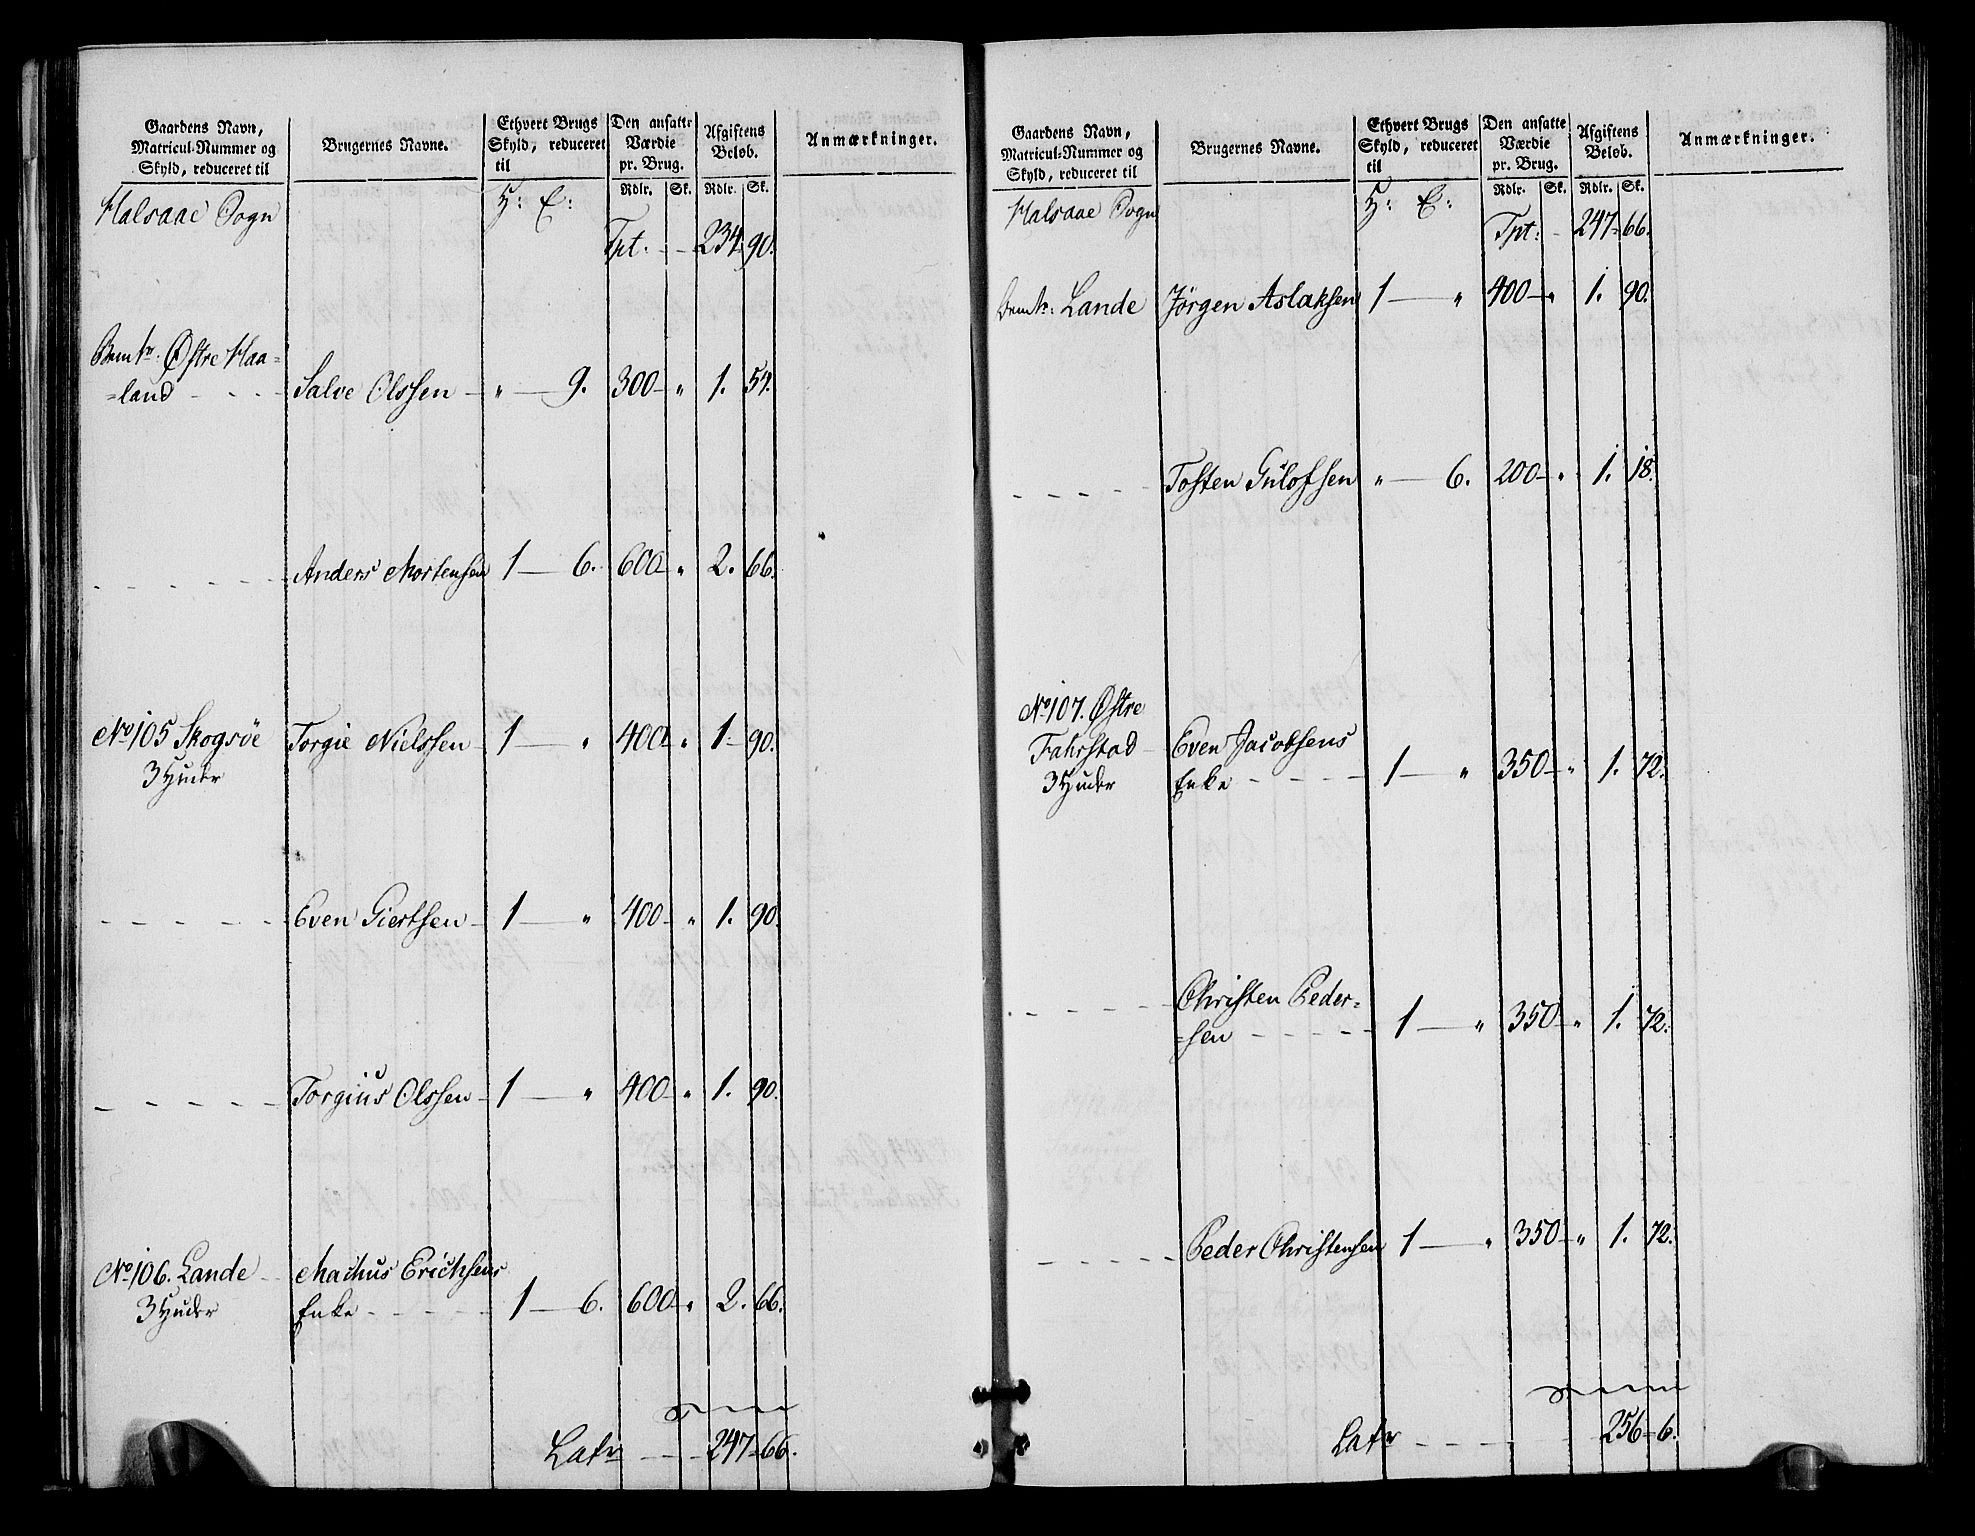 Gaardens Navn, Matricul-Nummer og Skyld, reduceret til | Brugernes Navne. | Ethvert Brugs Skyld, reduceret til | Den ansatte Værdie pr. Brug. | Afgiftens Beløb. | Anmærkninger.
Rdlr. Sk. Rdlr. Sk.
Halsaae Sogn H: E:
Tpt: - - 234 90.
Østre Haa=
=land - - - - Salve Olssen - " — 9. 300 " 1. 54.
- - - - - Anders Mortensen 1 — 6. 600 " 2. 66.
No 105 Skogsøe Torgie Nielssen 1 — " 400 " 1. 90.
3 Huder
- - - - - Even Giertsen 1 — " 400 " 1. 90.
- - - - - Torgius Olssen 1 — " 400 " 1. 90.
No 106. Lande Machus Erichsens
3 Huder Enke - - - - 1 — 6. 600 " 2. 66.
Latr - - - 247 66.
Gaardens Navn, Matricul-Nummer og Skyld, reduceret til | Brugernes Navne. | Ethvert Brugs Skyld, reduceret til | Den ansatte Værdie pr. Brug. | Afgiftens Beløb. | Anmærkninger.
Rdlr. Sk. Rdlr. Sk.
Halsaae Sogn H: E:
Tpt: - 247 66.
Lande Jørgen Aslaksen 1 — " 400 " 1. 90.
- - - - - Tosten Gulofsen " — 6. 200 " 1. 18.
No 107. Østre
Fahrstad Even Jacobsens
3 Huder Enke - - - - 1 — " 350 " 1. 72.
- - - - - Christen Peder=
=sen - - - - 1 — " 350 " 1. 72.
- - - - - Peder Christensen 1 — " 350 " 1. 72.
Latr - - - - 256 6.